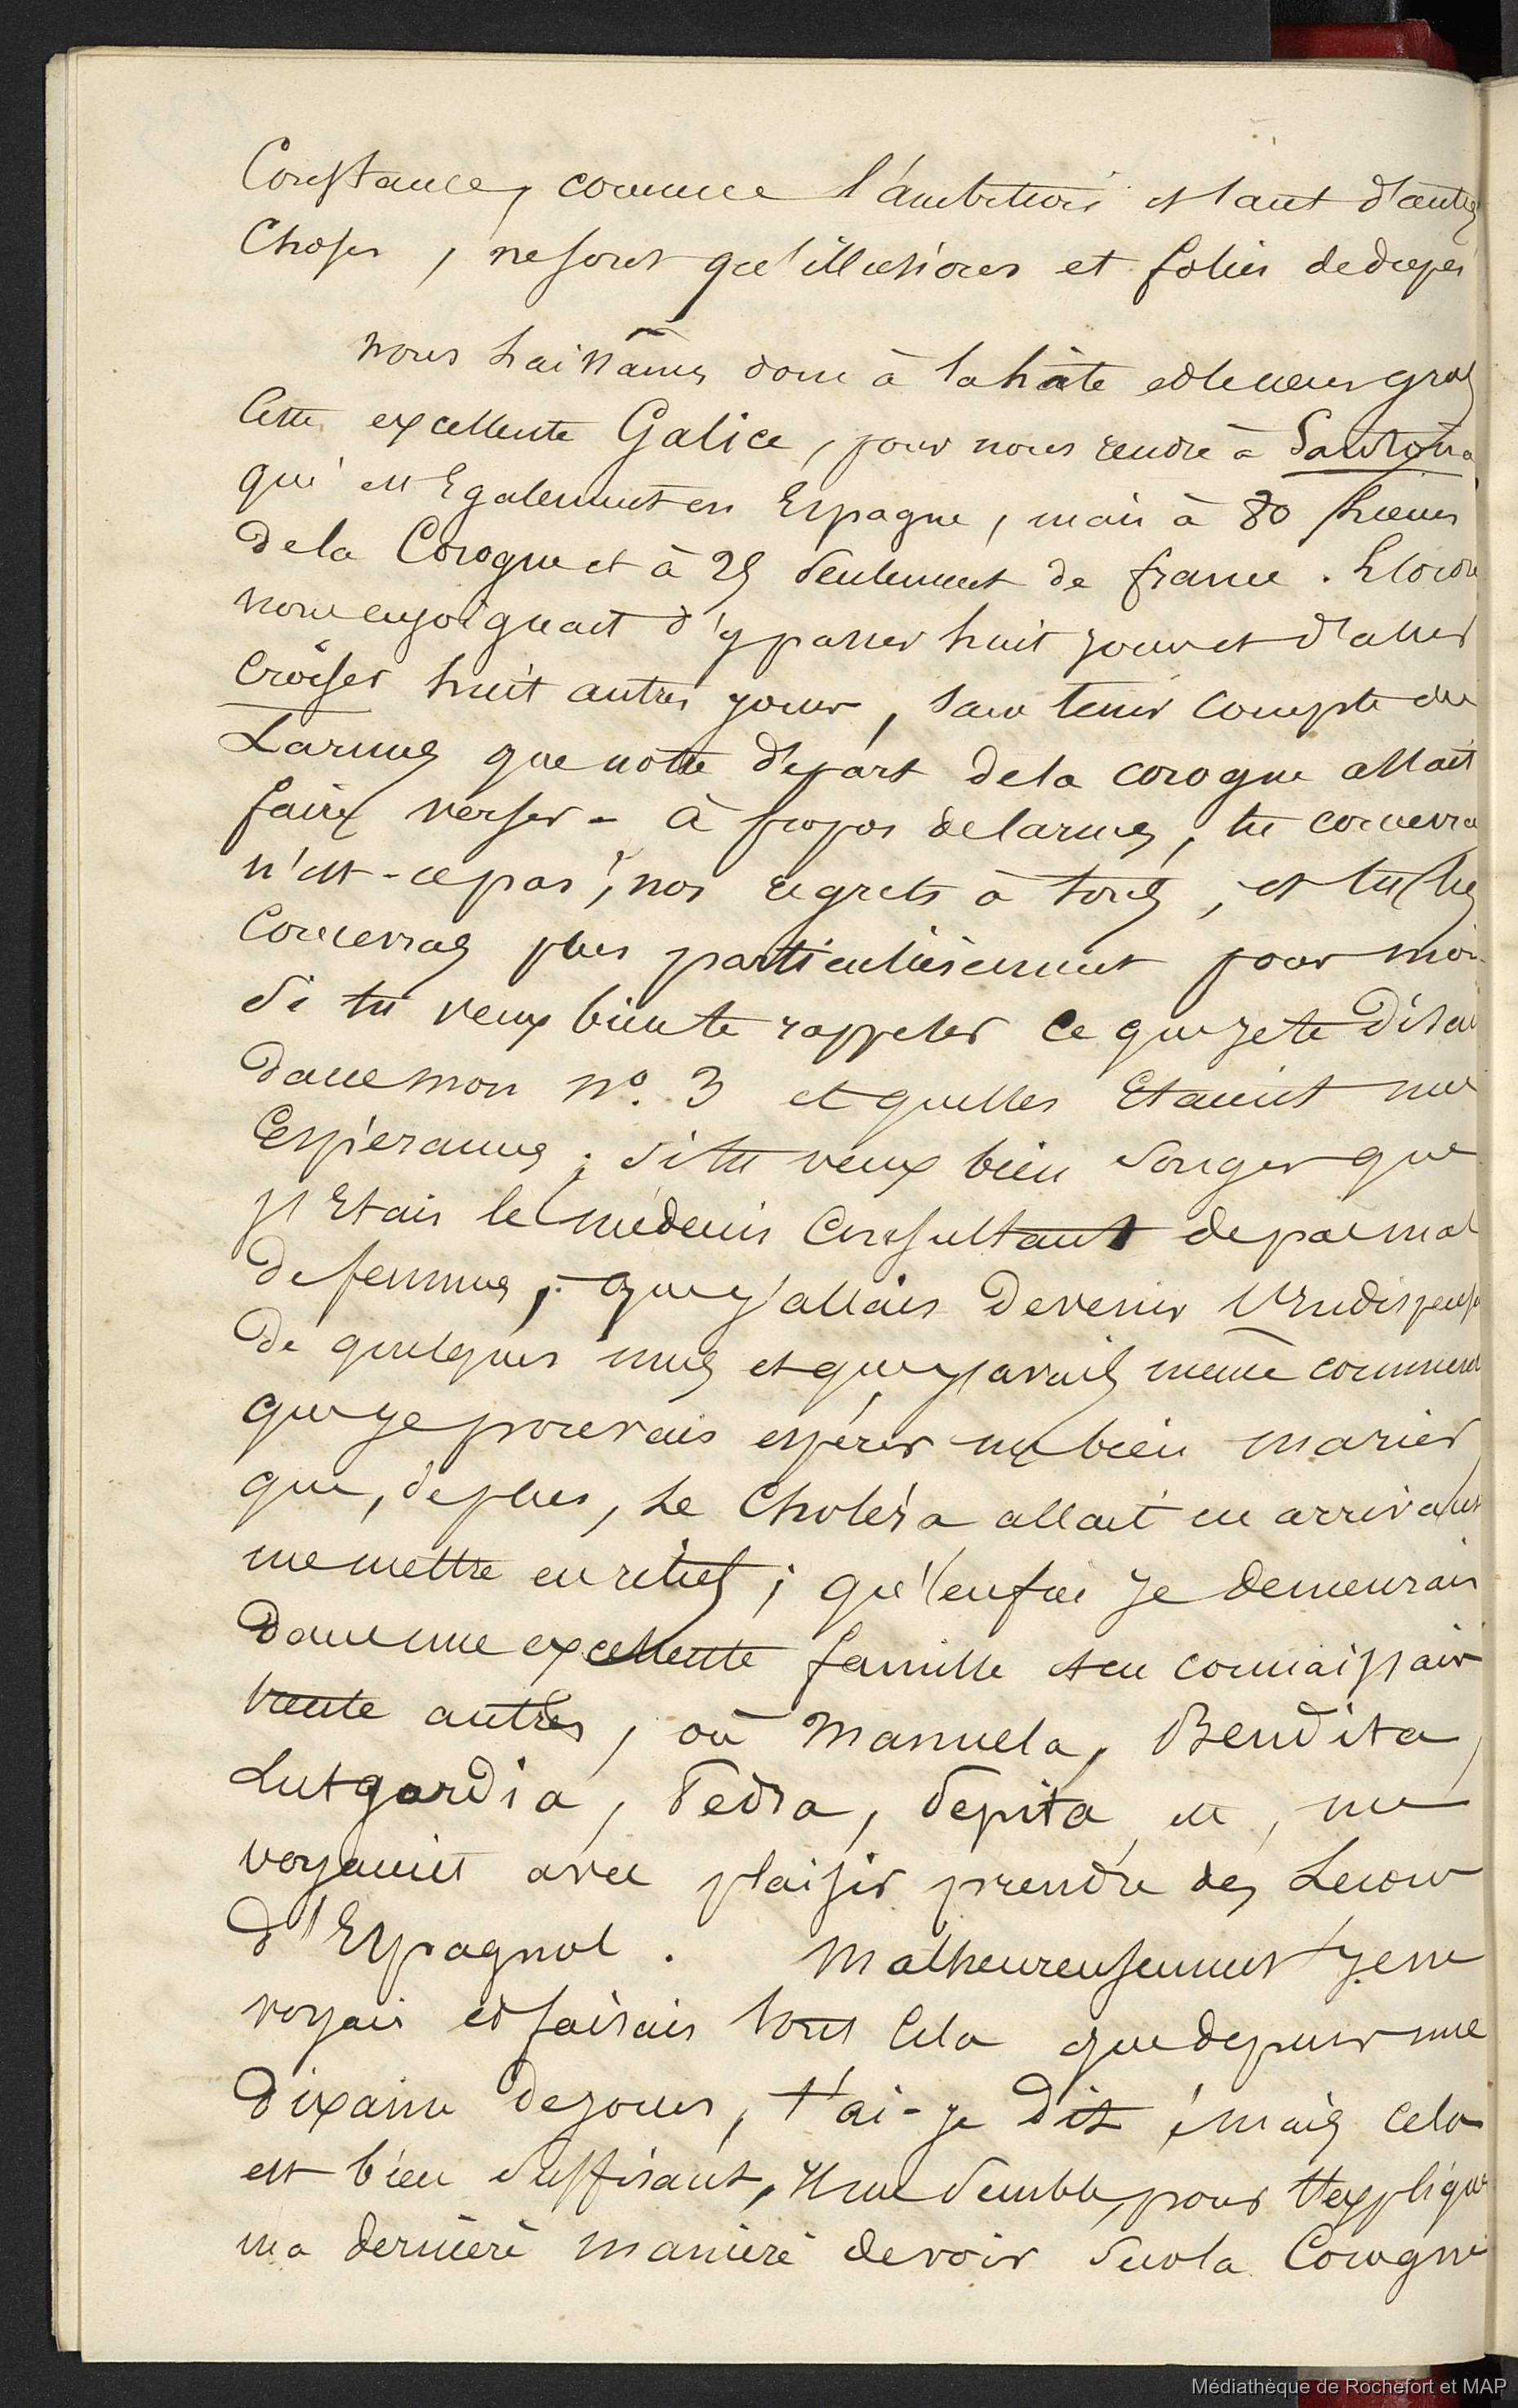 Constance, comme l'ambition et tant d'autres
Choses, ne sont qu'illusions et folies de dupes
nous laissâmes donc à la hâte et le cœur gros
Cette excellente Galice, pour nous rendre à Santoña
qui est Egalement en Espagne, mais à 80 lieues
De la Corogne et à 25 seulement de france. L'ordre
nous enjoignait d'y passer huit jours et d'aller
Croiser huit autres jours, sans tenir compte des
Larmes que notre départ de la corogne allait
faire verser - à propos de larmes, tu concevras
n'est-ce pas, nos regrets à tous, et tu les
Concevras plus particulièrement pour moi
si tu veux bien te rappeler ce que je te disais
Dans mon n°. 3 et quelles Etaient mes
Espérances; si tu veux bien songer que
j'Etais le médecin Consultant de pas mal
De femmes; que j'allais devenir l'Indispensable
De quelques unes et que j'avais même commencé
que je pouvais espérer me bien marier
que, de plus, le Choléra allait en arrivant
me mettre en relief; qu'enfin je demeurais
Dans une excellente famille et en connaissais
trente autres, où Manuela, Bendita,
Lutgardia, Pedra, Pepita, etc, me
voyaient avec plaisir prendre des Leçons
D'Espagnol. Malheureusement je ne
voyais et faisais tout cela que depuis une
Dixaine de jours, t'ai-je dit; mais cela
est bien suffisant, Il me semble, pour t'expliquer
ma dernière manière de voir sur la Corogne